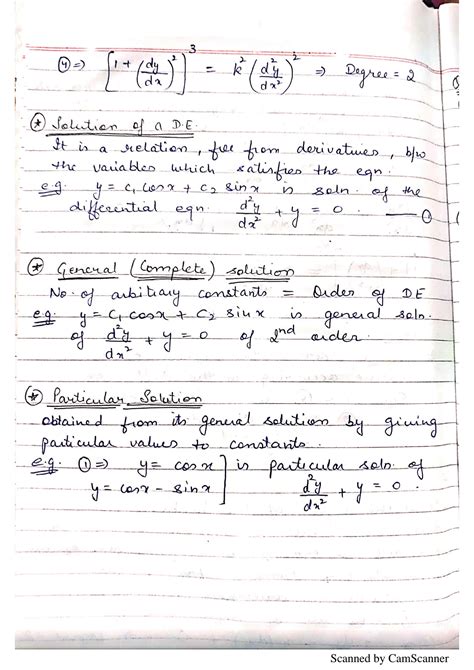 ④ ⇒ [1 + (dy/dx)²]³ = k² (d²y/dx²)² ⇒ Degree = 2
⊛ Solution of a D.E.
It is a relation, free from derivatives, b/w
the variables which satisfies the eqn.
e.g. y = c₁ cosx + c₂ sinx is soln. of the
differential eqn. d²y/dx² + y = 0. —①
⊛ General (Complete) solution
No. of arbitrary constants = Order of DE
e.g. y = C₁ cosx + C₂ sinx is general soln.
of d²y/dx² + y = 0 of 2nd order.
⊛ Particular Solution
obtained from its general solution by giving
particular values to constants.
e.g. ① ⇒ y = cosx ] is particular soln. of
y = cosx - sinx ] d²y/dx² + y = 0.
Scanned by CamScanner